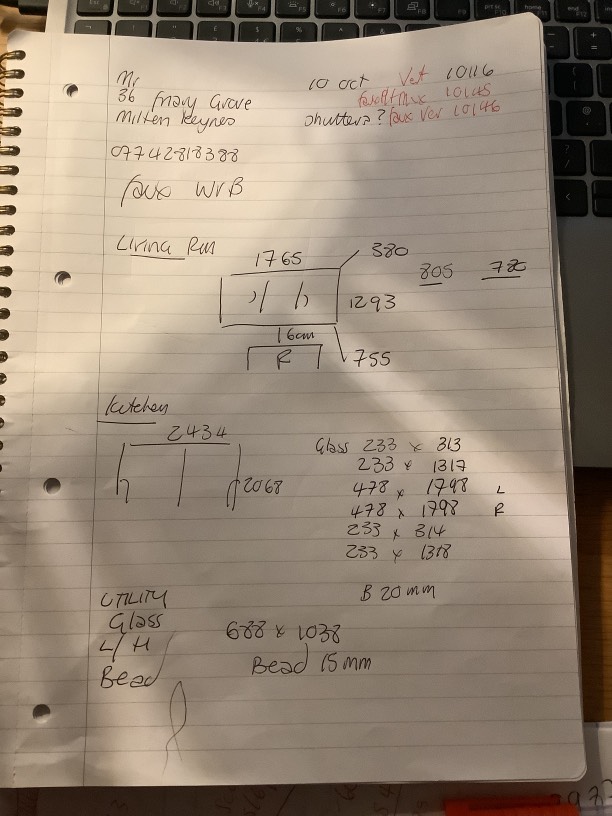 Mr
36 Friary Grove
Milton Keynes
07742818388
10 oct Vet 10116
10145
shutters? faux Ver 10146
faux WVB
Living Rm
1765 380
805 780
1293
16cm
R 755
Kitchen
2434
2068
Glass 233 x 313
233 x 1317
478 x 1798 L
478 x 1798 R
233 x 314
233 x 1318
B 20mm
UTILITY
Glass
L/H
Bead
688 x 1038
Bead 15mm